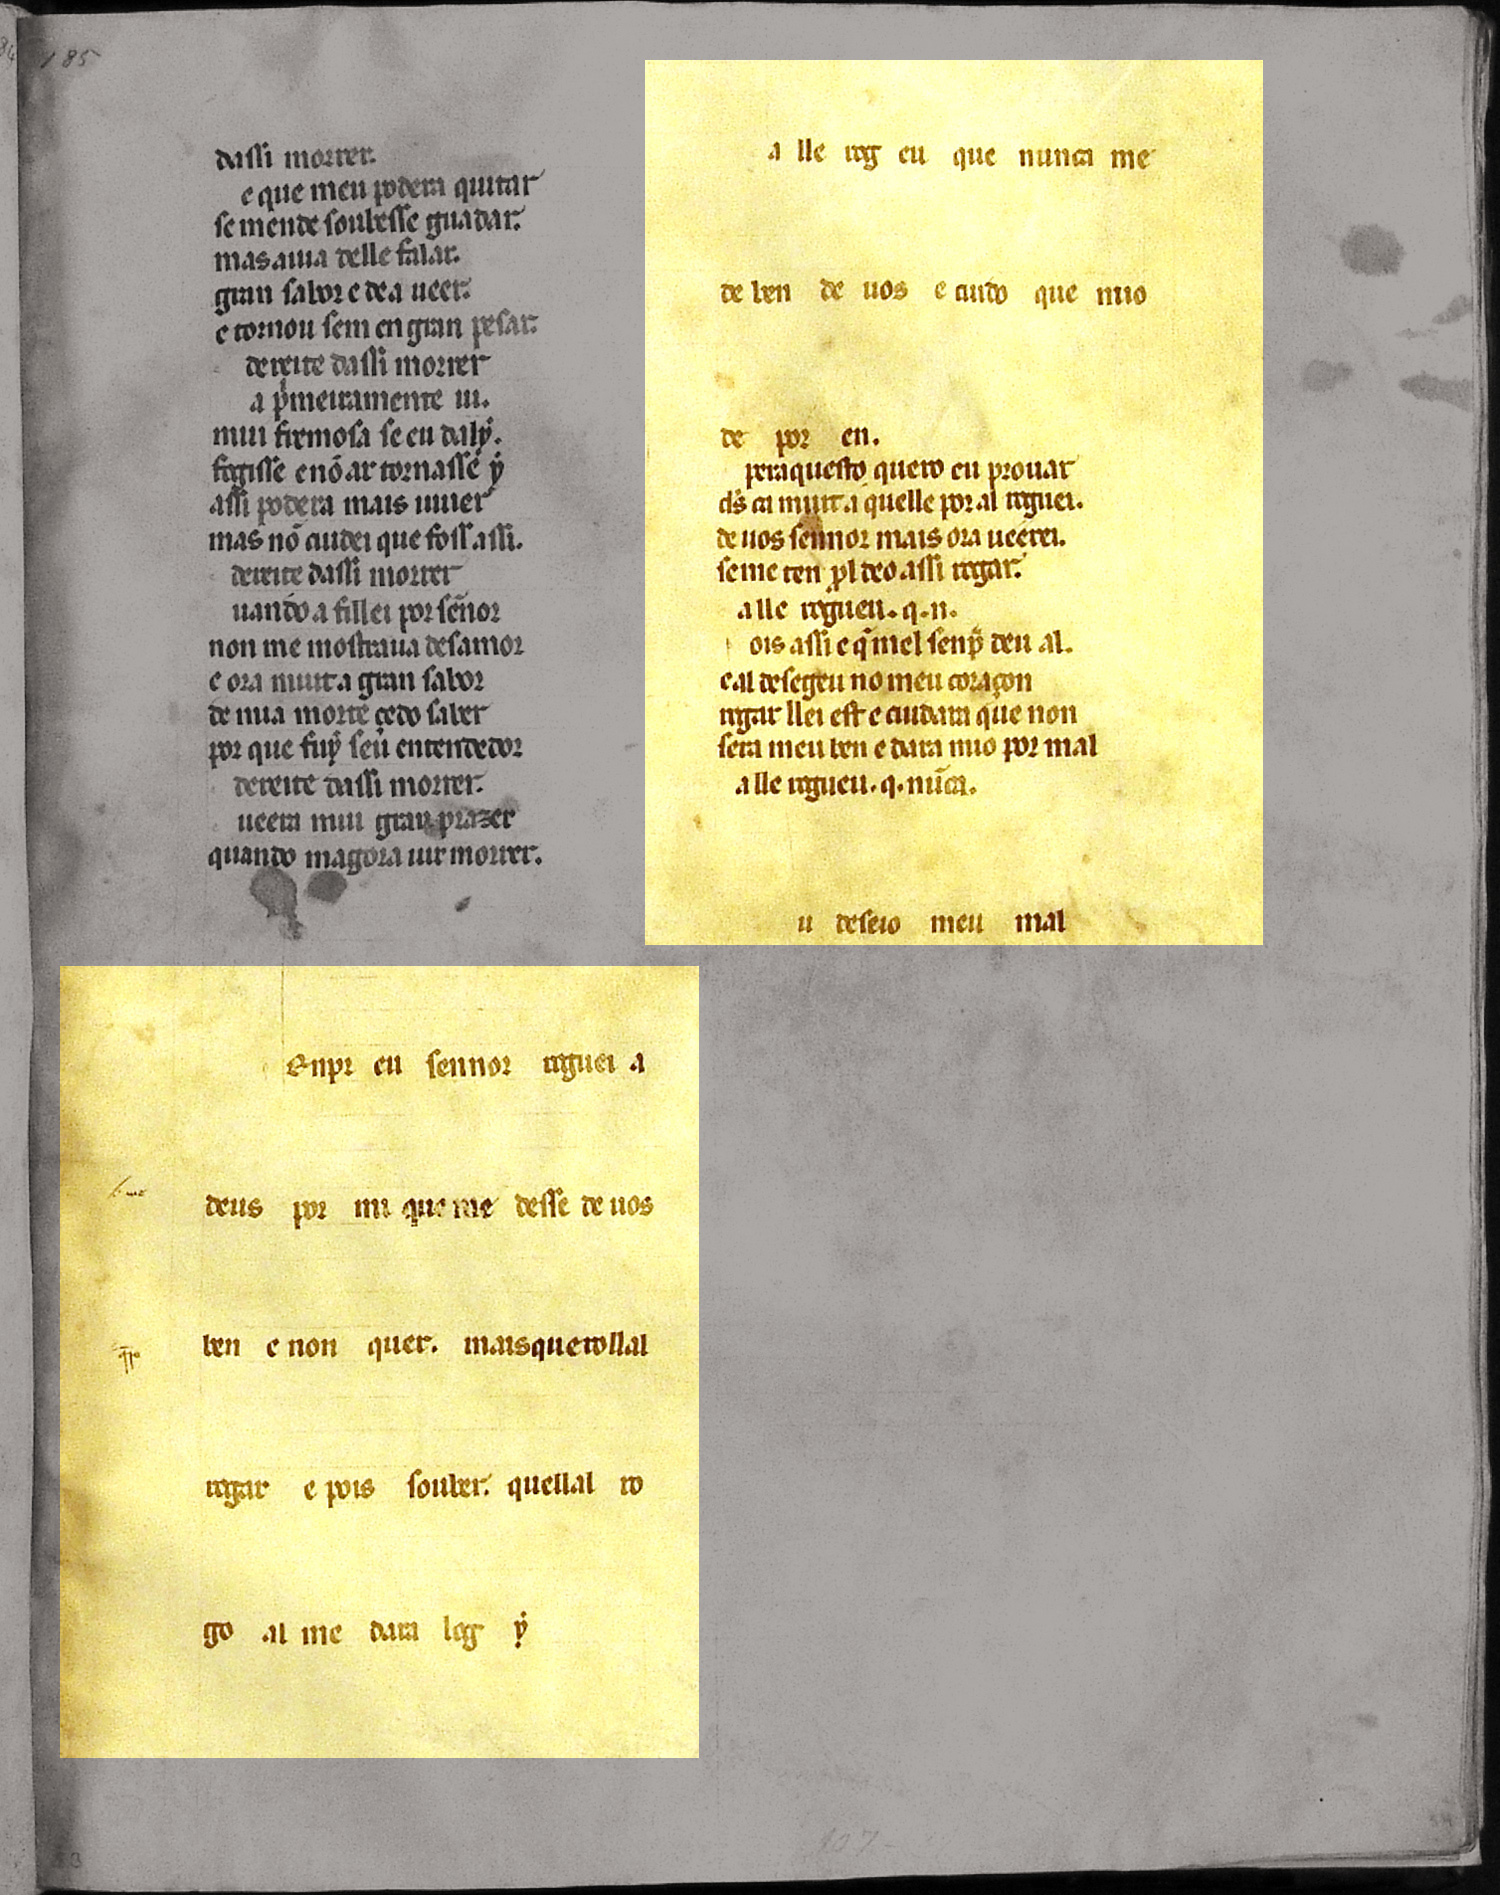 185
dassi morrer.
e que meu podera quitar
se mende soubesse guadar.
mas auia delle falar.
gran sabor e de a ueer.
e tornou sem en gran pesar.
dereite dassi morrer
a p̃meiramente ui.
mui fremosa se eu dalẏ.
fogisse e nõ ar tornasse ẏ
assi podera mais uiuer
mas nõ cuidei que foss assi.
dereite dassi morrer
uando a fillei por sẽnor
non me mostraua desamor
e ora muit a gran sabor
de mia morte çedo saber
por que fuẏ seũ entendedor
dereite dassi morrer.
ueera mui gran prazer
quando magora uir morrer.
Enpr eu sennor roguei a
deus por mi que me desse de uos
ben e non quer. mais querollal
rogar e pois souber. quellal ro
go al me dara log ẏ
a lle rog eu que nunca me
de ben de uos e cuido que mio
de por en.
peraquesto quero eu prouar
d̃s ca muit a quelle por al roguei.
de uos sennor mais ora ueerei.
se me ten p̱l deo assi rogar.
a lle rogueu. q. n.
ois assi e q̃ mel senp̃ deu al.
e al desegeu no meu coraçon
rogar llei est e cuidara que non
sera meu ben e dara mio por mal
a lle rogueu. q. nũca.
u deseio meu mal